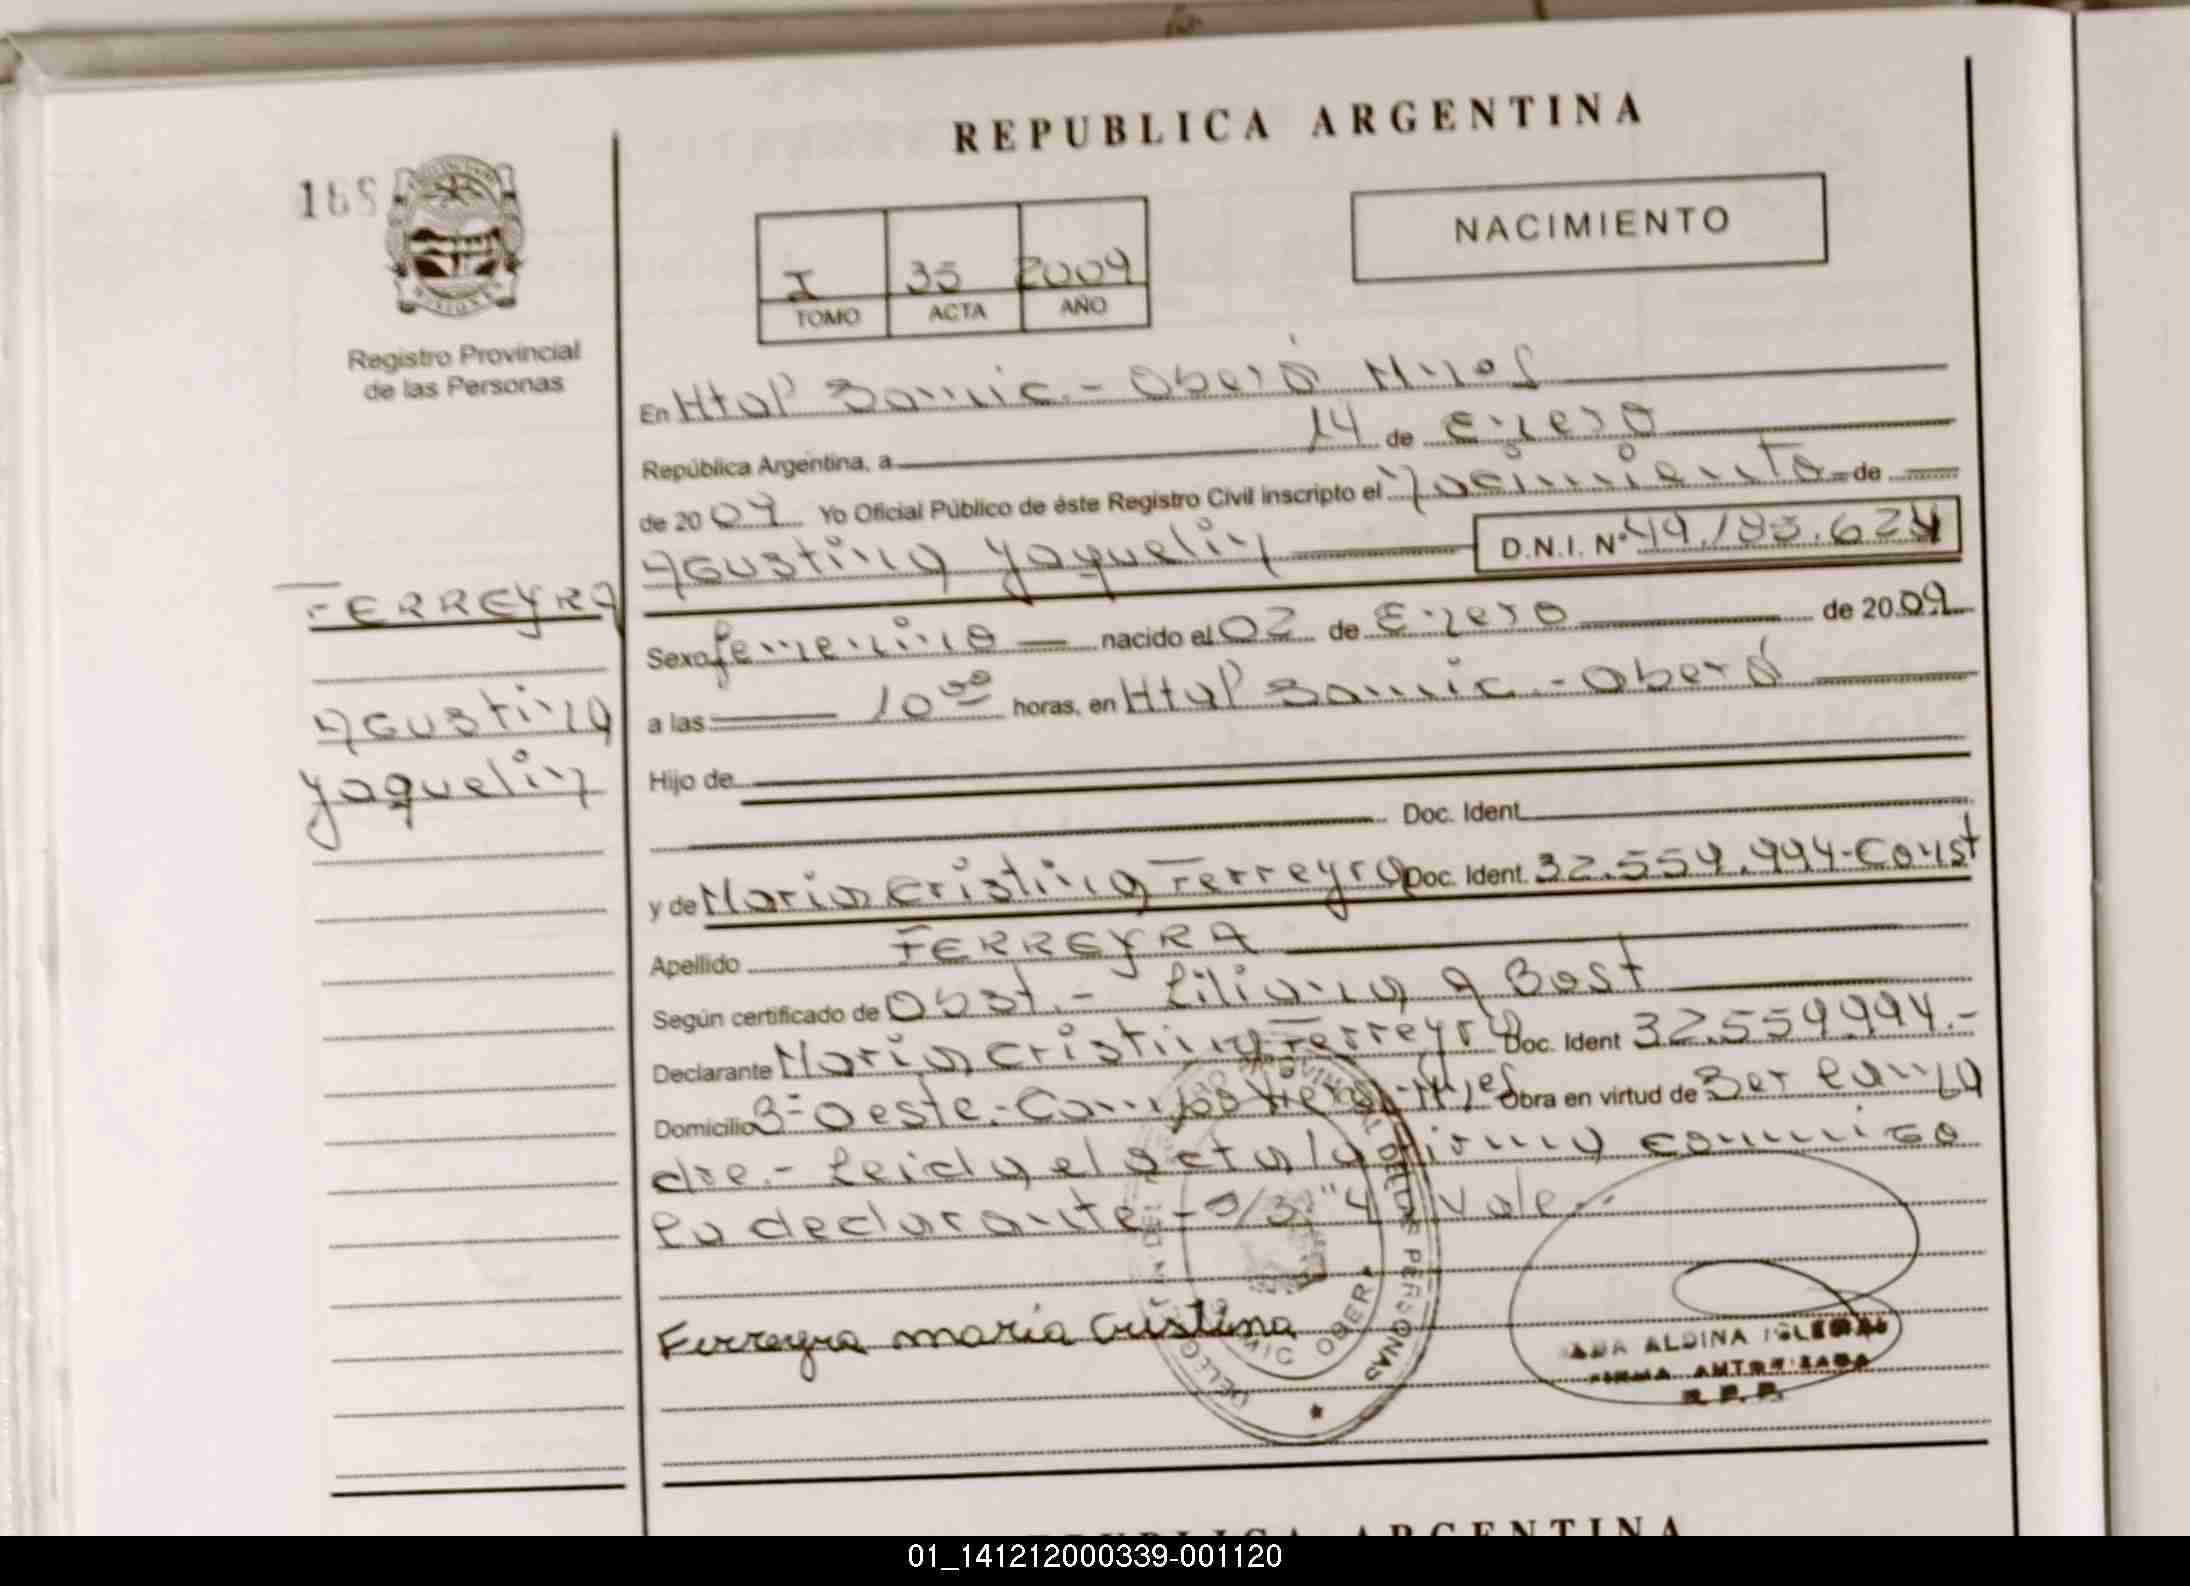 REPUBLICA ARGENTINA
NACIMIENTO
I 35 2009
TOMO ACTA AÑO
Registro Provincial
de las Personas
En Htal Samic.- Oberá Mnes
República Argentina, a 14 de Enero
de 2009 Yo Oficial Público de éste Registro Civil inscripto el Nacimiento de
Agustina Yaquelin D.N.I. Nº 49.183.624
FERREYRA
Sexo femenino nacido el 02 de Enero de 2009
Agustina
a las 10 horas, en Htal Samic.- Oberá
Yaquelin
Hijo de
Doc. Ident.
y de Maria Cristina Ferreyra Doc. Ident. 32.559.994-Const
Apellido FERREYRA
Según certificado de Obst.- Liliana A Bast
Declarante Maria Cristina Ferreyra Doc. Ident 32.559.994.-
Domicilio Oeste.- Campo Viera - Mnes Obra en virtud de Ser la ma
dre.- Leida el acta la firma conmigo
la declarante.- "4" Vale.-
Ferreyra maria Cristina
PERSONAS
SAMIC OBERA
ALDINA IGLESIAS
FIRMA AUTORIZADA
R. P. P.
REPUBLICA ARGENTINA
01_141212000339-001120